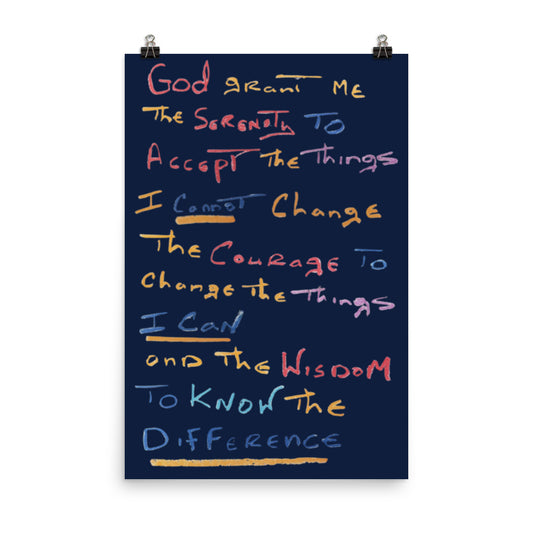 GOD grant ME
The SERENITy TO
Accept The Things
I Cannot Change
The Courage To
Change The Things
I CAN
and The WISDOM
To KNOW The
DIFFERENCE